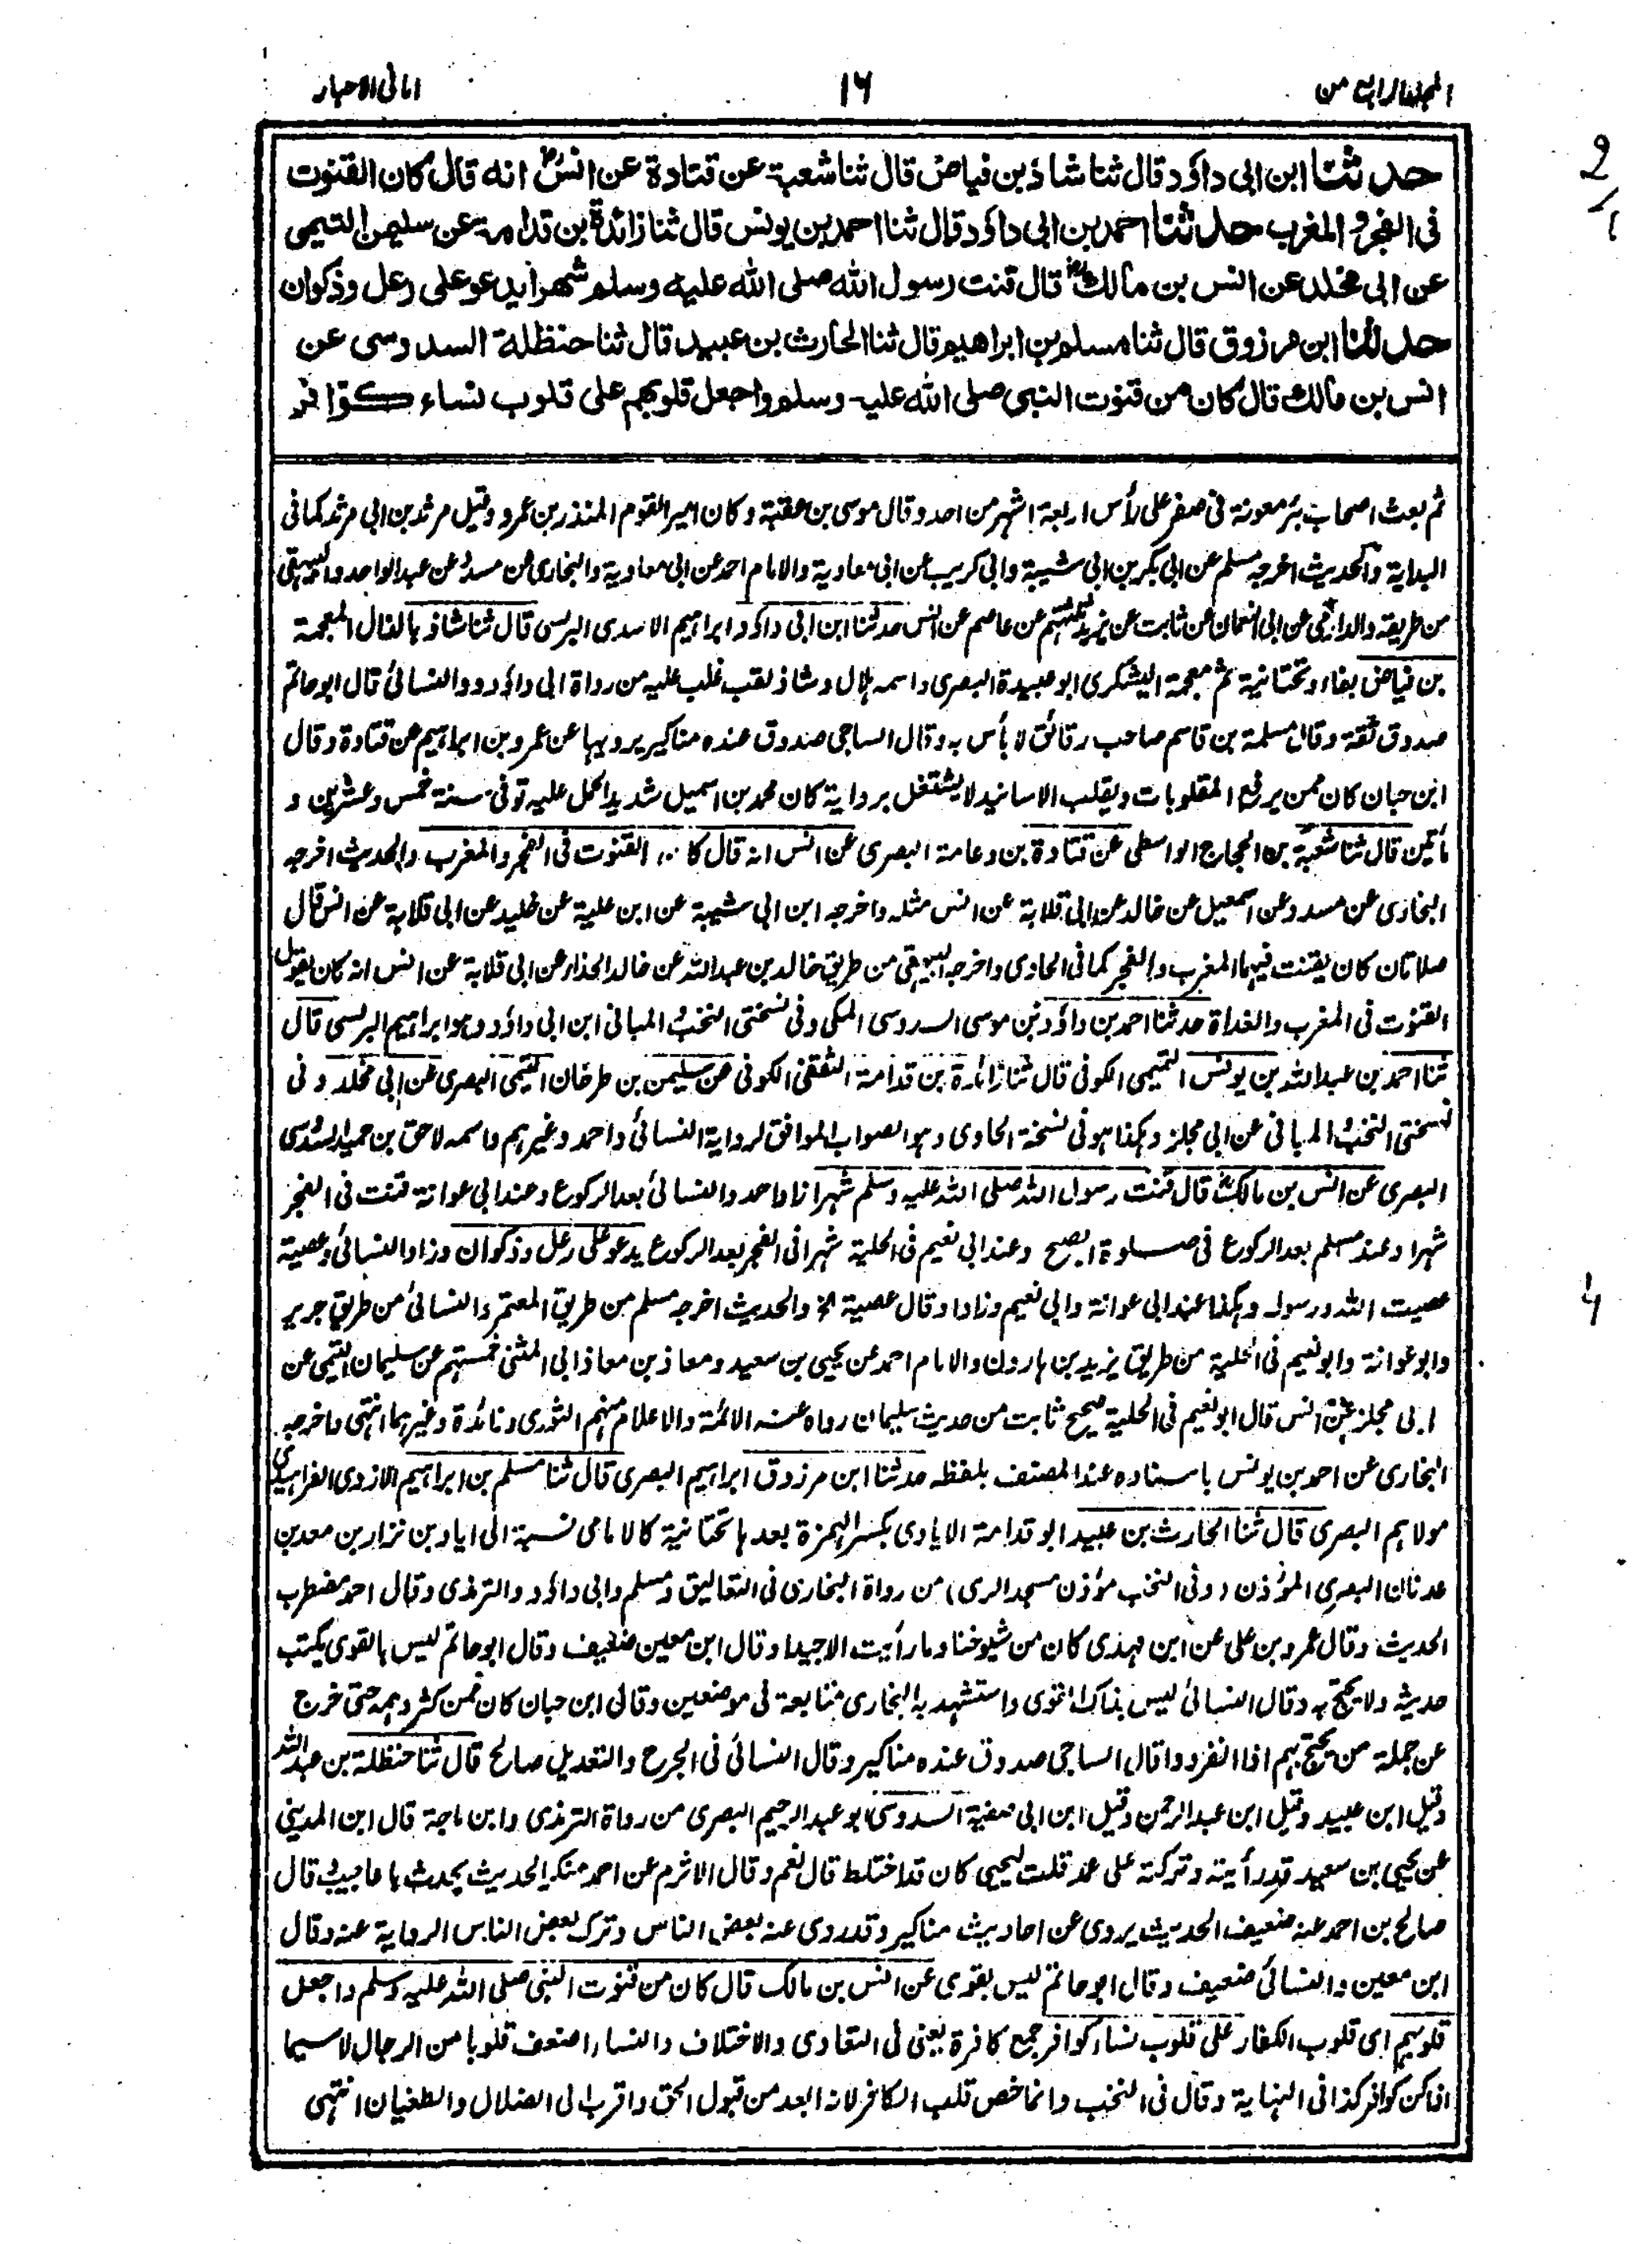 المجلد الرابع من
١٦
امانى الاحبار
حدثنا ابن ابى داؤد قال ثنا شاذ بن فياض قال ثنا شعبة عن قتادة عن انس رض انه قال كان القنوت
فى الفجر و المغرب حدثنا احمد بن ابى داؤد قال ثنا احمد بن يونس قال ثنا زائدة بن قدامة عن سليمن التيمى
عن ابى مخلد عن انس بن مالك رض قال قنت رسول الله صلى الله عليه وسلم شهرا يدعو على رعل وذكوان
حدثنا ابن مرزوق قال ثنا مسلم بن ابراهيم قال ثنا الحارث بن عبيد قال ثنا حنظلة السدوسى عن
انس بن مالك قال كان من قنوت النبى صلى الله عليه وسلم واجعل قلوبهم على قلوب نساء كوافر
ثم بعث اصحاب بئر معونة فى صفر على رأس اربعة اشهر من احد وقال موسى بن عقبة وكان امير القوم المنذر بن عمرو وقيل مرثد بن ابى مرثد كما فى
البداية والحديث اخرجه مسلم عن ابى بكر بن ابى شيبة وابى كريب عن ابى معاوية والامام احمد عن ابى معاوية والبخارى عن مسدد عن عبد الواحد والبيهقى
من طريقه والدارمى عن ابى النعمان عن ثابت عن يزيد كلهم عن عاصم عن انس حدثنا ابن ابى داؤد ابراهيم الاسدى البرلسى قال ثنا شاذ بالذال المعجمة
بن فياض بفاء وتحتانية ثم معجمة اليشكرى ابو عبيدة البصرى واسمه هلال وشاذ لقب غلب عليه من رواة ابى داؤد والنسائى قال ابو حاتم
صدوق ثقة وقال مسلمة بن قاسم صاحب رقائق لا بأس به وقال الساجى صدوق عنده مناكير يرويها عن عمرو بن ابراهيم عن قتادة وقال
ابن حبان كان ممن يرفع المقلوبات ويقلب الاسانيد لا يشتغل برواية كان محمد بن اسمعيل شديد الحمل عليه توفى سنة خمس وعشرين و
مأتين قال ثنا شعبة بن الحجاج الواسطى عن قتادة بن دعامة البصرى عن انس انه قال كان القنوت فى الفجر والمغرب والحديث اخرجه
البخارى عن مسدد عن اسمعيل عن خالد عن ابى قلابة عن انس مثله واخرجه ابن ابى شيبة عن ابن علية عن خليد عن ابى قلابة عن انس قال
صلاتان كان يقنت فيهما المغرب والفجر كما فى الحاوى واخرجه البيهقى من طريق خالد بن عبد الله عن خالد الحذاء عن ابى قلابة عن انس انه كان يقول
القنوت فى المغرب والغداة حدثنا احمد بن داؤد بن موسى السدوسى المكى وفى نسختى النخب المبانى ابن ابى داؤد وهو ابراهيم البرلسى قال
ثنا احمد بن عبد الله بن يونس التميمى الكوفى قال ثنا زائدة بن قدامة الثقفى الكوفى عن سليمن بن طرخان التيمى البصرى عن ابى مخلد وفى
نسختى النخب المبانى عن ابى مجلز وهكذا هو فى نسخة الحاوى وهو الصواب الموافق لرواية النسائى واحمد وغيرهم واسمه لاحق بن حميد السدوسى
البصرى عن انس بن مالك رض قال قنت رسول الله صلى الله عليه وسلم شهرا زاد احمد والنسائى بعد الركوع وعند ابى عوانة قنت فى الفجر
شهرا وعند مسلم بعد الركوع فى صلوة الصبح وعند ابى نعيم فى الحلية شهرا فى الفجر بعد الركوع يدعو على رعل وذكوان وزاد النسائى وعصية
عصيت الله ورسوله وهكذا عند ابى عوانة وابى نعيم وزادا وقال عصية الخ والحديث اخرجه مسلم من طريق المعتمر والنسائى من طريق جرير
وابو عوانة وابو نعيم فى الحلية من طريق يزيد بن هارون والامام احمد عن يحيى بن سعيد ومعاذ بن معاذ ابى المثنى خمستهم عن سليمان التيمى عن
ابى مجلز عن انس قال ابو نعيم فى الحلية صحيح ثابت من حديث سليمان رواه عنه الائمة والاعلام منهم الثورى وزائدة وغيرهما انتهى واخرجه
البخارى عن احمد بن يونس باسناده عند المصنف بلفظه حدثنا ابن مرزوق ابراهيم البصرى قال ثنا مسلم بن ابراهيم الازدى الفراهيدى
مولاهم البصرى قال ثنا الحارث بن عبيد ابو قدامة الايادى بكسر الهمزة بعدها تحتانية كالامامى نسبة الى اياد بن نزار بن معد بن
عدنان البصرى المؤذن (وفى النخب مؤذن مسجد الرى) من رواة البخارى فى التعاليق ومسلم وابى داؤد والترمذى وقال احمد مضطرب
الحديث وقال عمرو بن على عن ابن مهدى كان من شيوخنا وما رأيت الا جيدا وقال ابن معين ضعيف وقال ابو حاتم ليس بالقوى يكتب
حديثه ولا يحتج به وقال النسائى ليس بذاك القوى واستشهد به البخارى متابعة فى موضعين وقال ابن حبان كان ممن كثر وهمه حتى خرج
عن جملة من يحتج بهم اذا انفردوا قال الساجى صدوق عنده مناكير وقال النسائى فى الجرح والتعديل صالح قال ثنا حنظلة بن عبد الله
وقيل ابن عبيد وقيل ابن عبد الرحمن وقيل ابن ابى صفية السدوسى ابو عبد الرحيم البصرى من رواة الترمذى وابن ماجة قال ابن المدينى
عن يحيى بن سعيد قد رأيته وتركته على عمد قلت ليحيى كان قد اختلط قال نعم وقال الاثرم عن احمد منكر الحديث يحدث باعاجيب قال
صالح بن احمد عنه ضعيف الحديث يروى عن احاديث مناكير وقد روى عنه بعض الناس وترك بعض الناس الرواية عنه وقال
ابن معين والنسائى ضعيف وقال ابو حاتم ليس بقوى عن انس بن مالك قال كان من قنوت النبى صلى الله عليه وسلم واجعل
قلوبهم اى قلوب الكفار على قلوب نساء كوافر جمع كافرة يعنى فى التعادى والاختلاف والنساء اضعف قلوبا من الرجال لا سيما
اذا كن كوافر كذا فى النهاية وقال فى النخب وانما خص قلب الكافر لانه ابعد من قبول الحق واقرب الى الضلال والطغيان انتهى